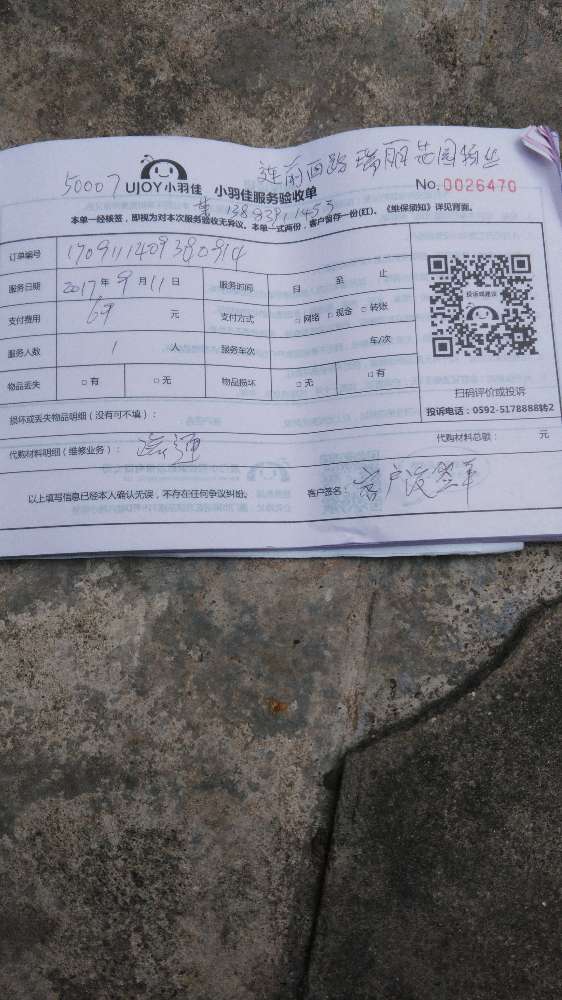 50007 UJOY小羽佳 小羽佳服务验收单
连前西路瑞丽花园物业
No. 0026470
本单一经核签,即视为对本次服务验收无异议。本单一式两份,客户留存一份(红)。《维保须知》详见背面。
订单编号
服务日期 2017年9月11日 服务时间 自 至 止
支付费用 69 元 支付方式 □网络 □现金 □转账
服务人数 1 人 服务车次 车/次
物品丢失 □有 □无 物品损坏 □无 □有
投诉或建议
扫码评价或投诉
投诉电话:0592-5178888转2
损坏或丢失物品明细(没有可不填):
代购材料明细(维修业务): 疏通 代购材料总额: 元
以上填写信息已经本人确认无误,不存在任何争议纠纷。 客户签名: 客户没签单